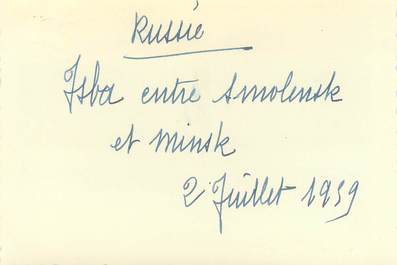 Russie
Isba entre Smolensk
et Minsk
2 Juillet 1959